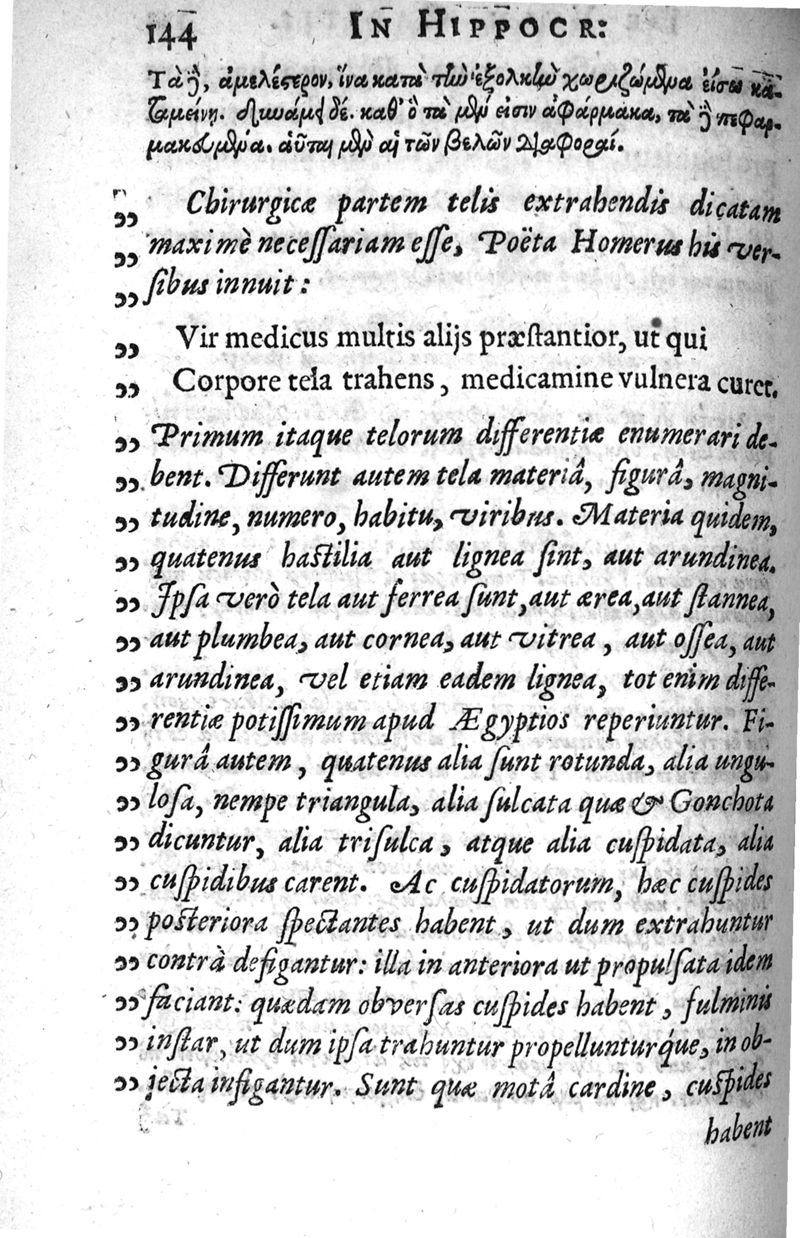 144 IN HIPPOCR:
Τὰ ἢ, ἀμελέστερον, ἵνα κατὰ τὴν ἐξολκὴν χωριζώμενα εἴσω κα-
ταμείνῃ. δυνάμει δέ. καθ' ὃ τὰ μὲν εἰσιν ἀφάρμακα, τὰ ἢ πεφαρ-
μακευμένα. αὗται μὲν αἱ τῶν βελῶν διαφοραί.
„ Chirurgicæ partem telis extrahendis dicatam
„ maximè necessariam esse, Poëta Homerus his ver-
„ sibus innuit:
„ Vir medicus multis alijs præstantior, ut qui
„ Corpore tela trahens, medicamine vulnera curet.
„ Primum itaque telorum differentiæ enumerari de-
„ bent. Differunt autem tela materiâ, figurâ, magni-
„ tudine, numero, habitu, viribus. Materia quidem,
„ quatenus hastilia aut lignea sint, aut arundinea.
„ Ipsa verò tela aut ferrea sunt, aut ærea, aut stannea,
„ aut plumbea, aut cornea, aut vitrea, aut ossea, aut
„ arundinea, vel etiam eadem lignea, tot enim diffe-
„ rentiæ potissimum apud Ægyptios reperiuntur. Fi-
„ gurâ autem, quatenus alia sunt rotunda, alia ungu-
„ losa, nempe triangula, alia sulcata quæ & Gonchota
„ dicuntur, alia trisulca, atque alia cuspidata, alia
„ cuspidibus carent. Ac cuspidatorum, hæc cuspides
„ posteriora spectantes habent, ut dum extrahuntur
„ contrà defigantur: illa in anteriora ut propulsata idem
„ faciant: quædam obversas cuspides habent, fulminis
„ instar, ut dum ipsa trahuntur propelluntuŕque, in ob-
„ jecta infigantur. Sunt quæ motâ cardine, cuspides
habent